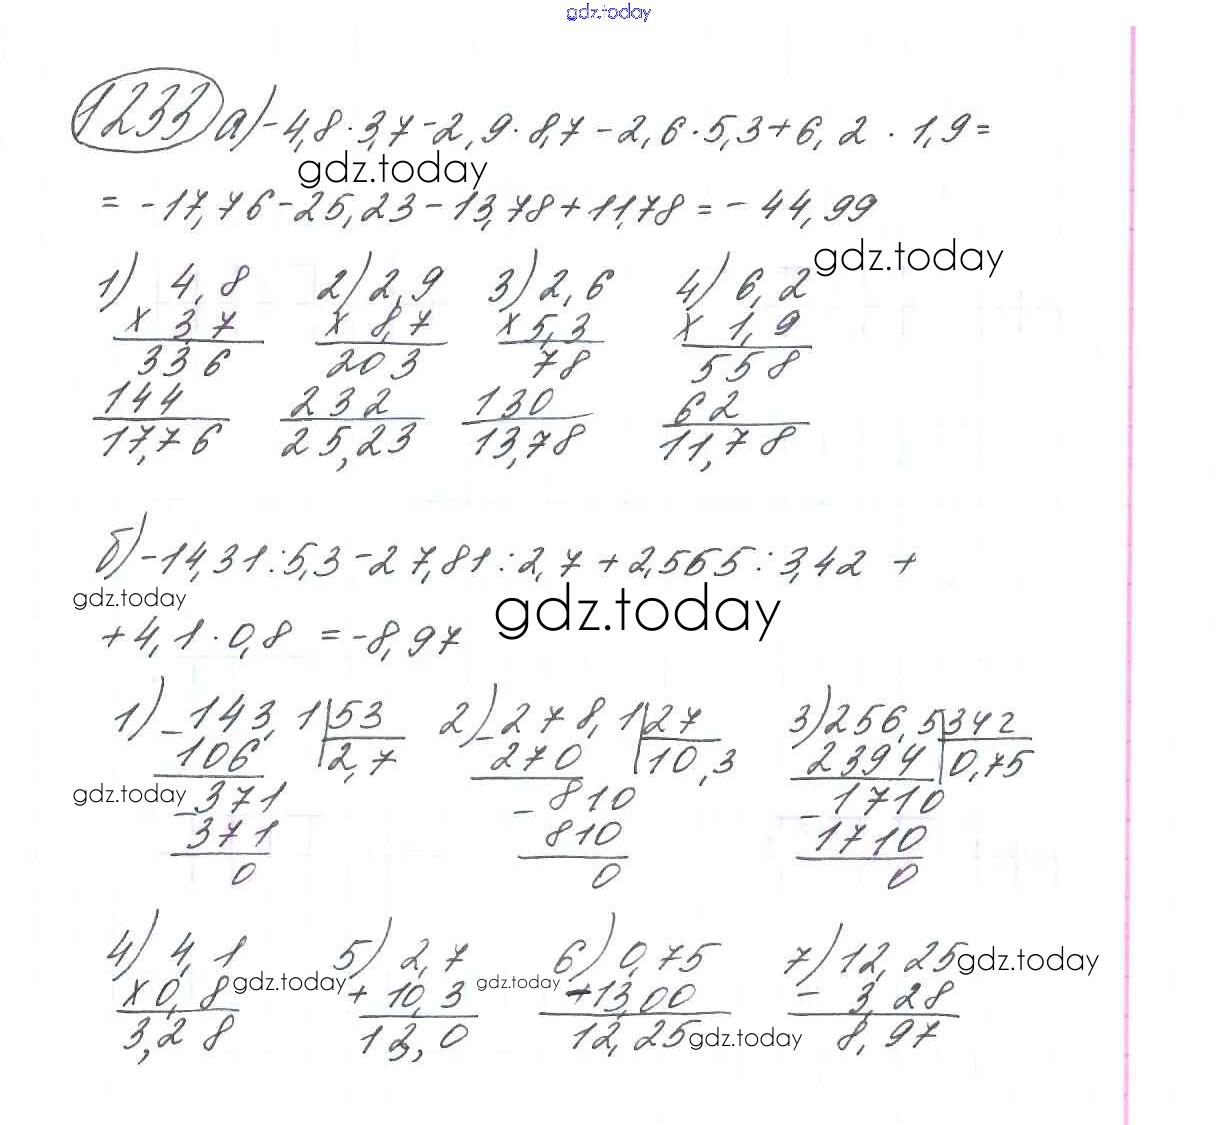 gdz.today
1233 а) -4,8·3,7-2,9·8,7-2,6·5,3+6,2·1,9=
gdz.today
= -17,76-25,23-13,78+11,78=-44,99
gdz.today
1) 4,8 2) 2,9 3) 2,6 4) 6,2
x 3,7 x 8,7 x 5,3 x 1,9
336 203 78 558
144 232 130 62
17,76 25,23 13,78 11,78
б) -14,31:5,3-27,81:2,7+2,565:3,42 +
gdz.today gdz.today
+4,1·0,8 =-8,97
1) -143,1 53 2) -278,1 27 3) 256,5 342
106 2,7 270 10,3 2394 0,75
gdz.today -371 -810 -1710
371 810 1710
0 0 0
4) 4,1 5) 2,7 6) 0,75 7) 12,25 gdz.today
x 0,8 gdz.today + 10,3 gdz.today -13,00 - 3,28
3,28 13,0 12,25 gdz.today 8,97